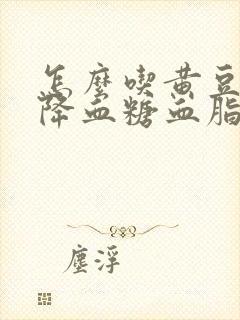 怎麼喫黄豆
降血糖血脂
塵浮